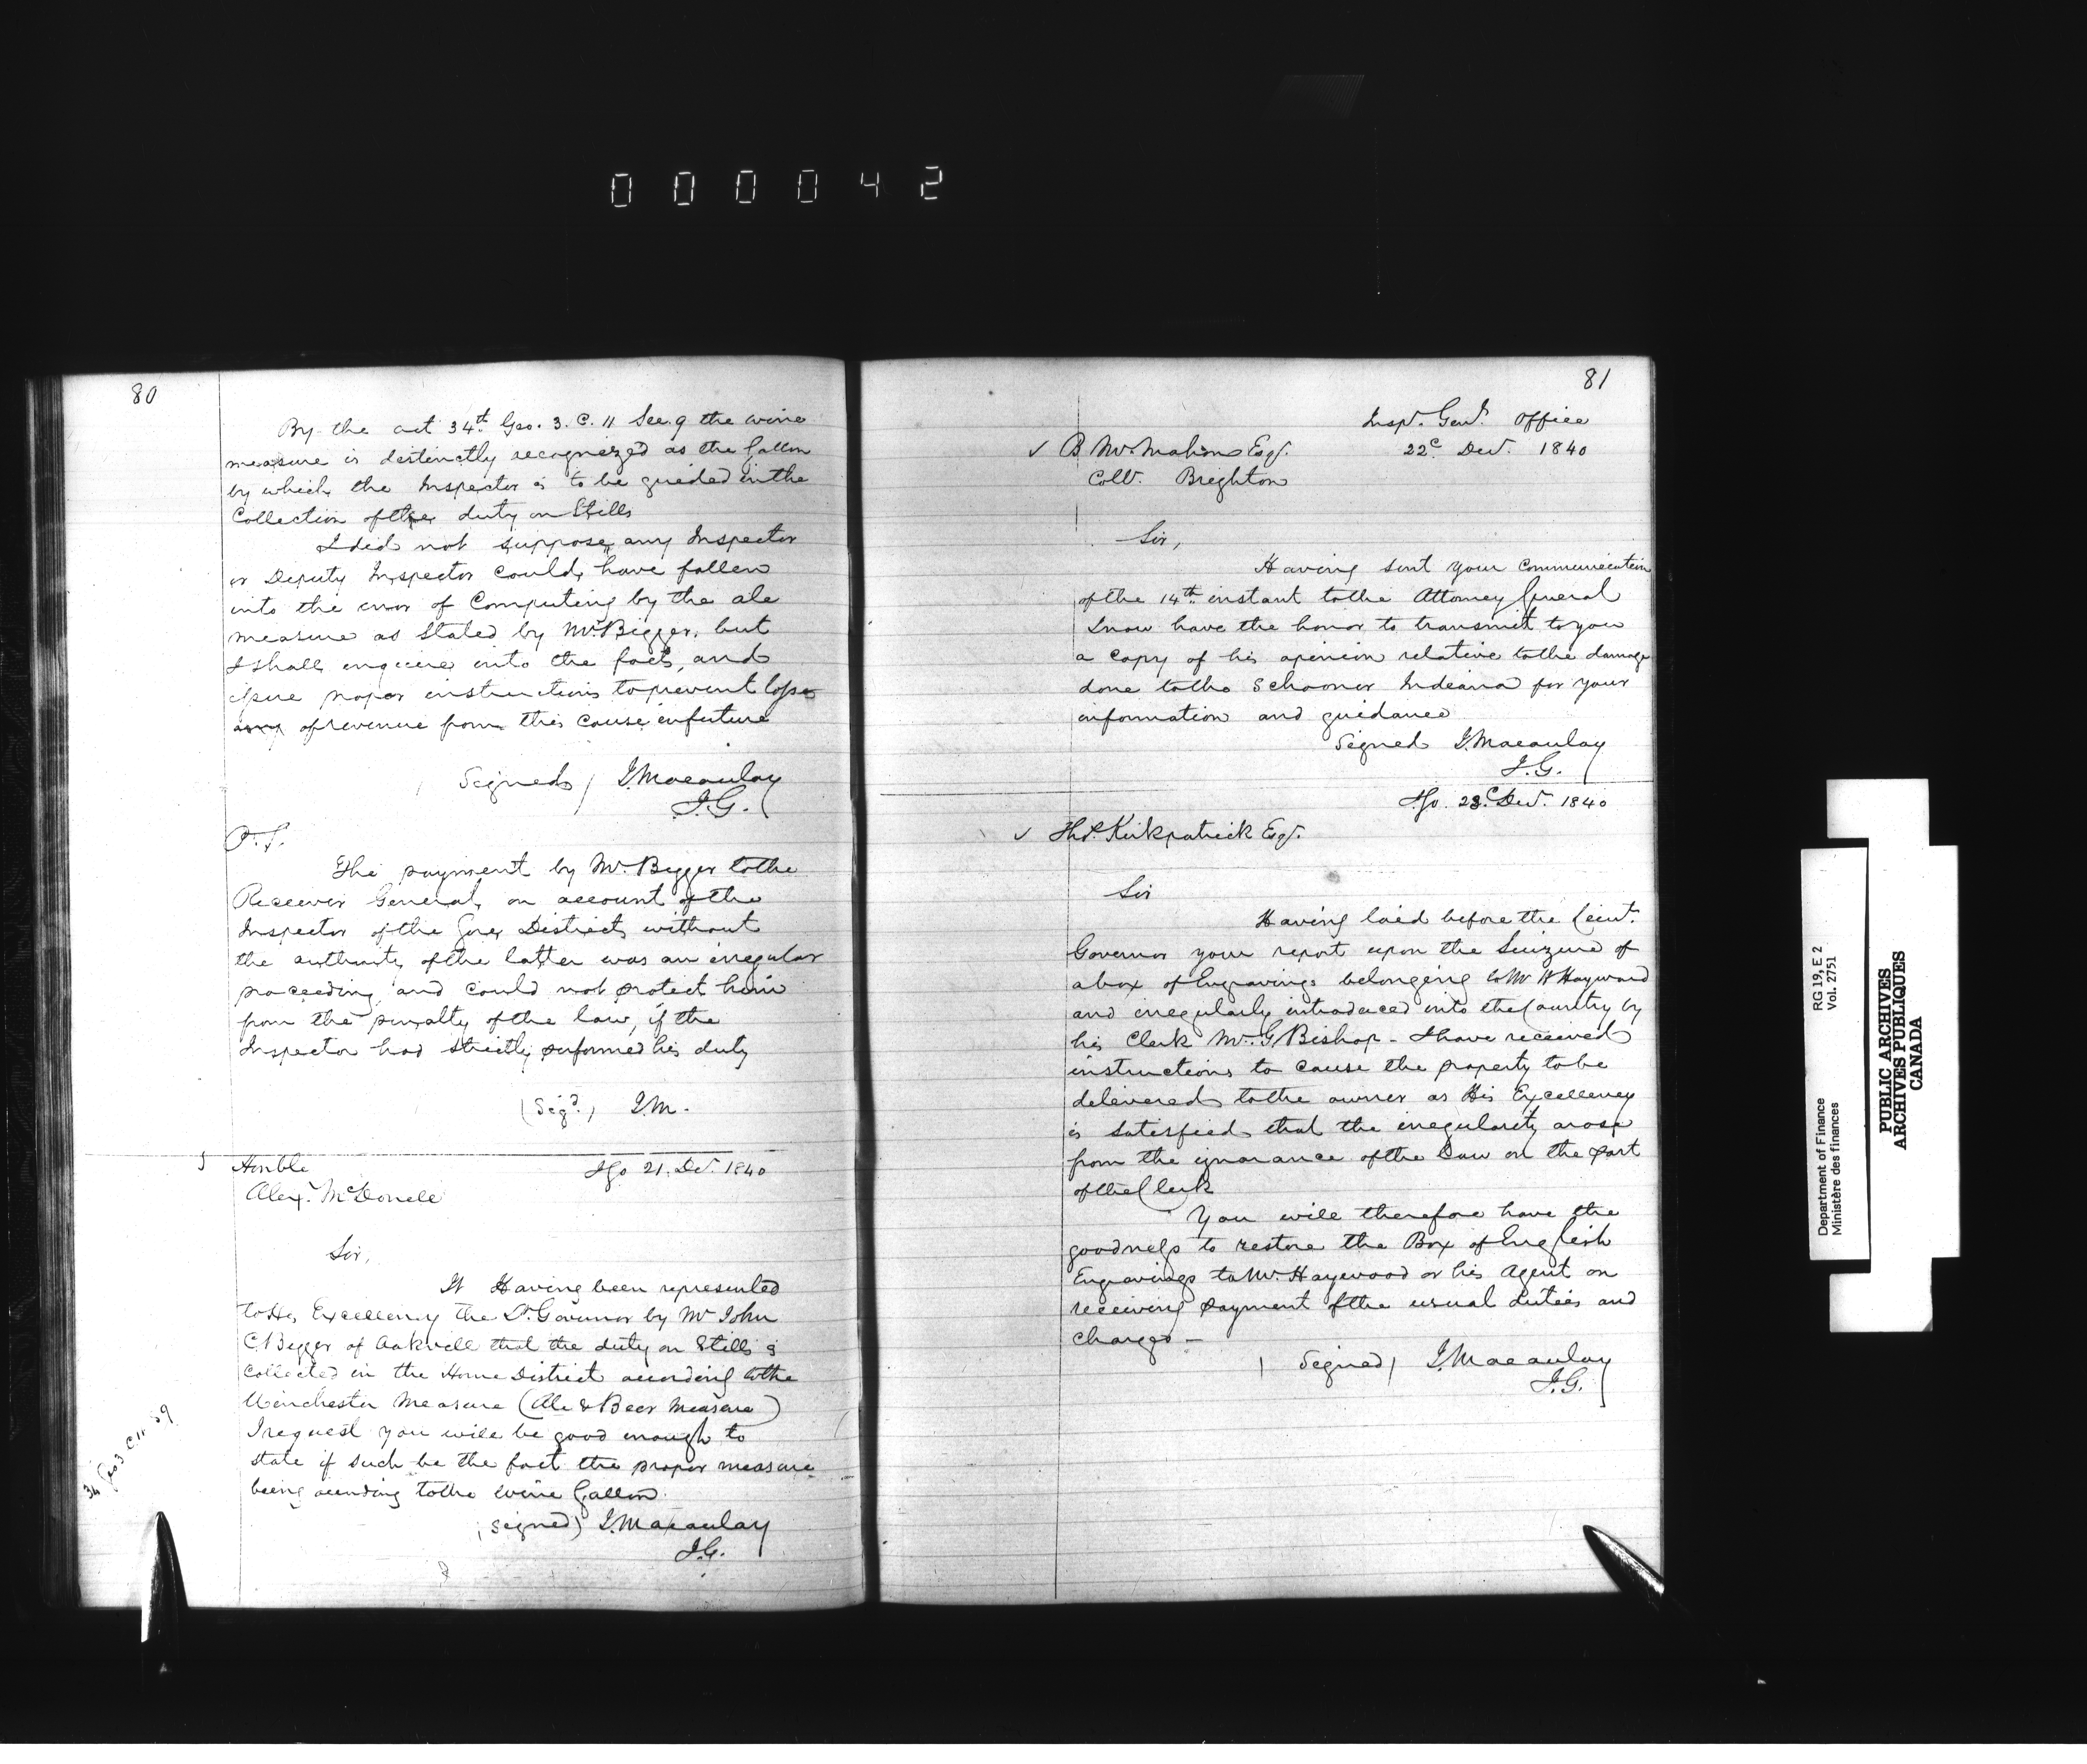 000042
80
By the act 34th Geo. 3. C. 11 Sec. 9 the wine
measure is distinctly recognized as the Gallon
by which the Inspector is to be guided in the
Collection of the duty on Stills
I did not suppose any Inspector
or Deputy Inspector could have fallen
into the error of Computing by the ale
measure as stated by Mr Bigger, but
I shall enquire into the fact, and
issue proper instructions to prevent loss
any of revenue from this cause in future
Signed / J. Macaulay
I.G.
P.S.
The payment by Mr. Bigger to the
Receiver General, on account of the
Inspector of the Gore District, without
the authority of the latter was an irregular
proceeding, and could not protect him
from the penalty of the law, if the
Inspector had strictly performed his duty
(Sigd.) J.M.
Honble
Igo 21. Decr. 1840
Alexr. McDonell
Sir,
It Having been represented
to His Excellency the Lt. Governor by Mr John
C. Bigger of Oakville that the duty on Stills is
collected in the Home District according to the
Winchester Measure (Ale & Beer Measure)
I request you will be good enough to
state if such be the fact the proper measure
being according to the wine Gallon.
34 Geo 3 C 11 S 9
(signed) J. Macaulay
I.G.
81
Insp. Genl. Office
22d Decr. 1840
✓ B McMahon Esqr.
Collr. Brighton
Sir,
Having sent your communication
of the 14th. instant to the Attorney General
I now have the honor to transmit to you
a copy of his opinion relative to the damage
done to the Schooner Indiana for your
information and guidance
Signed J. Macaulay
I.G.
Igo. 23d Decr. 1840
✓ Thos. Kirkpatrick Esqr.
Sir
Having laid before the Lieut.
Governor your report upon the Seizure of
a box of Engravings belonging to Mr W Hayward
and irregularly introduced into the Country by
his Clerk Mr. G Bishop - I have received
instructions to cause the property to be
delivered to the owner as His Excellency
is satisfied that the irregularity arose
from the ignorance of the Law on the part
of the Clerk
You will therefore have the
goodness to restore the Box of English
Engravings to Mr. Haywood or his Agent on
receiving payment of the usual duties and
charges -
( Signed ) J. Macaulay
I.G.
Department of Finance
Ministère des finances
RG 19, E 2
Vol. 2751
PUBLIC ARCHIVES
ARCHIVES PUBLIQUES
CANADA